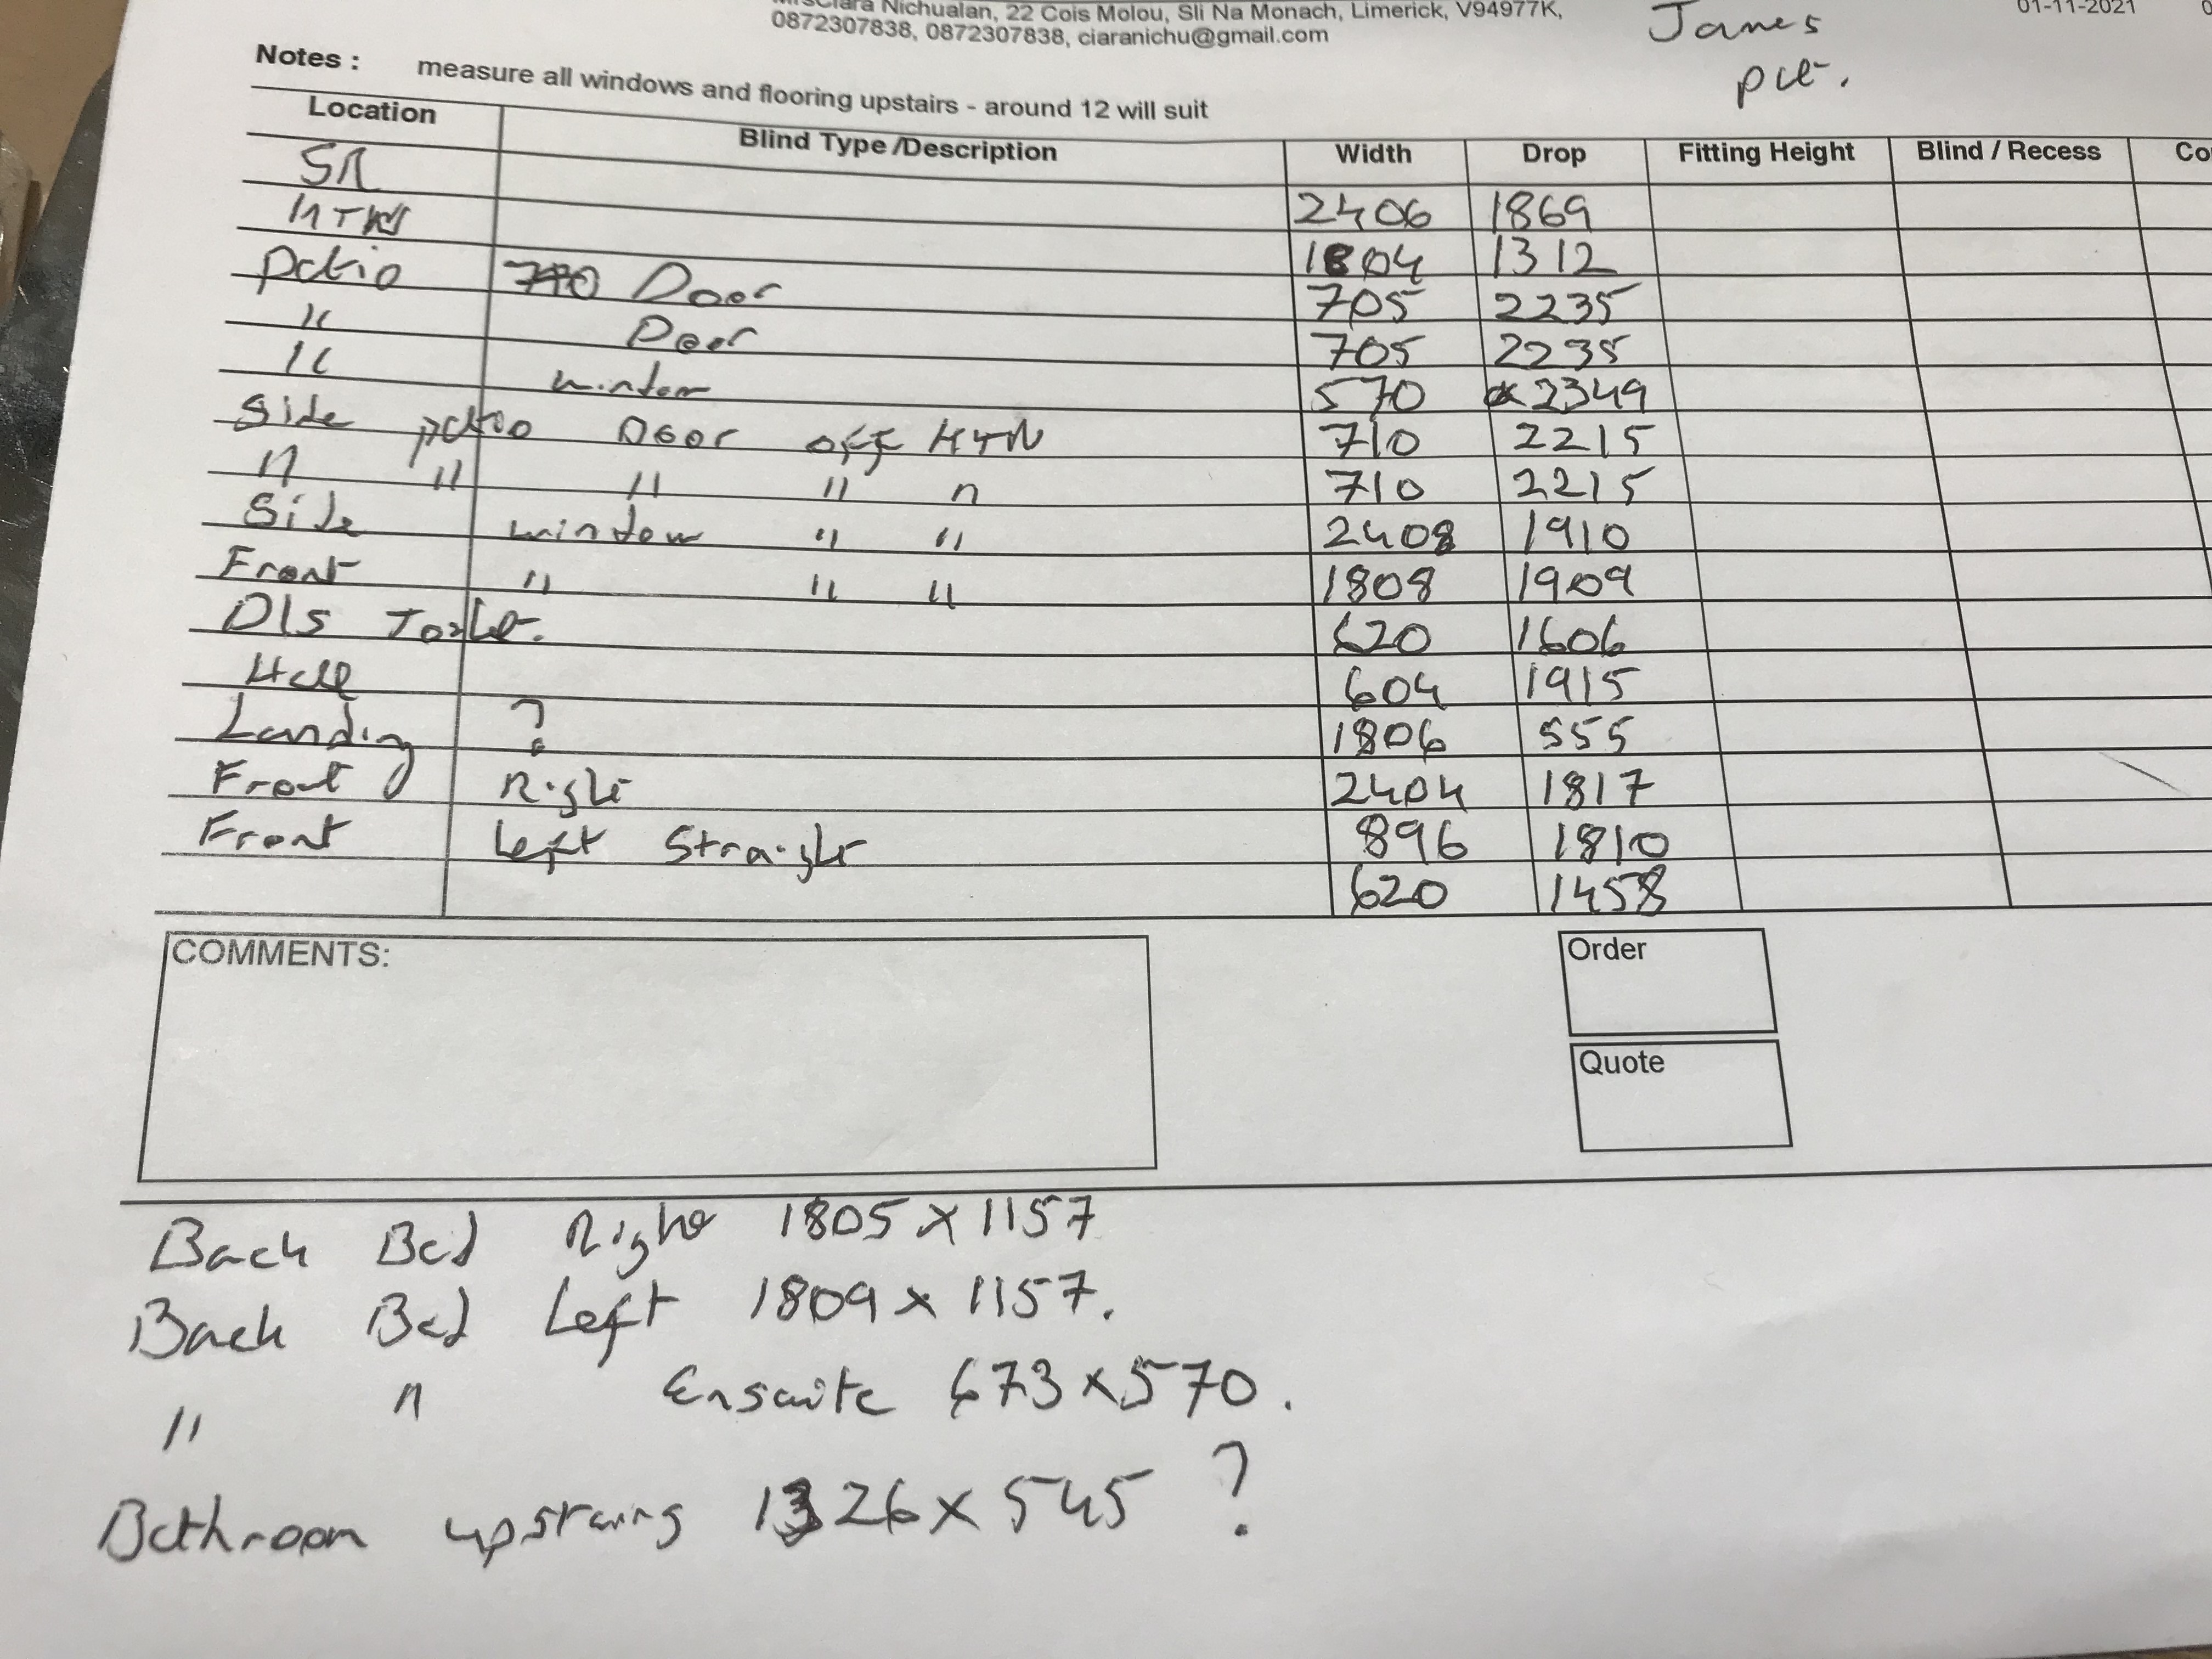 Nichualan, 22 Cois Molou, Sli Na Monach, Limerick, V94977K,
0872307838, 0872307838, ciaranichu@gmail.com
James
01-11-2021
Notes : measure all windows and flooring upstairs - around 12 will suit
Location Blind Type /Description Width Drop Fitting Height Blind / Recess Co
SR 2406 1869
1804 1312
patio Door 705 2235
" Door 705 2235
" window 570 2349
Side patio Door off KTN 710 2215
" " " " " 710 2215
Side window " " 2408 1910
Front " " " 1808 1909
D/S Toilet. 620 1606
Hall 604 1915
Landing ? 1806 555
Front Right 2404 1817
Front Left Straight 896 1810
620 1458
COMMENTS:
Order
Quote
Back Bed Right 1805 x 1157
Back Bed Left 1809 x 1157.
" " Ensuite 673 x 570.
Bathroom upstairs 1326 x 545 ?